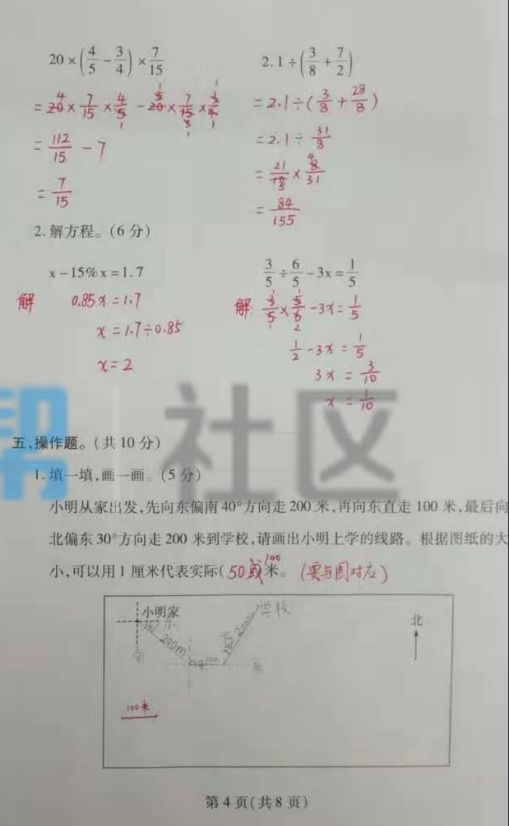 20×(4/5-3/4)×7/15
=20×7/15×4/5-20×7/15×3/4
=112/15-7
=7/15
2.1÷(3/8+7/2)
=2.1÷(3/8+28/8)
=2.1÷31/8
=21/10×8/31
=84/155
2.解方程。(6分)
x-15%x=1.7
解 0.85x=1.7
x=1.7÷0.85
x=2
3/5÷6/5-3x=1/5
解:3/5×5/6-3x=1/5
1/2-3x=1/5
3x=3/10
x=1/10
帮 社区
五、操作题。(共10分)
1.填一填,画一画。(5分)
小明从家出发,先向东偏南40°方向走200米,再向东直走100米,最后向
北偏东30°方向走200米到学校,请画出小明上学的线路。根据图纸的大
小,可以用1厘米代表实际(50或100米。(要与图对应)
小明家
东
南
200m
北
200m
学校
东
北
100米
第4页(共8页)